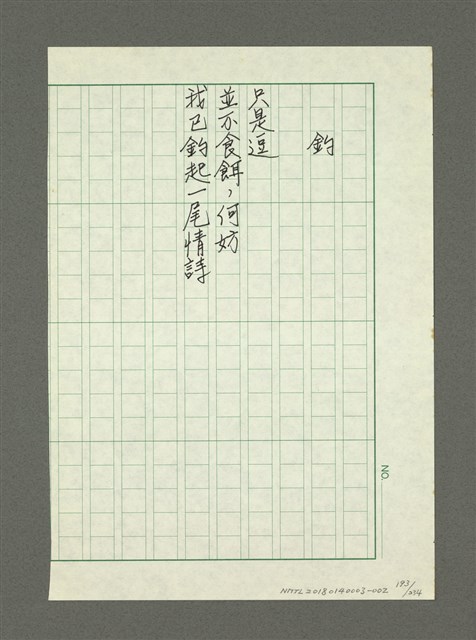 釣
只是逗
並不食餌，何妨
我已釣起一尾情詩
NO.
NMTL20180140003-002
193/224